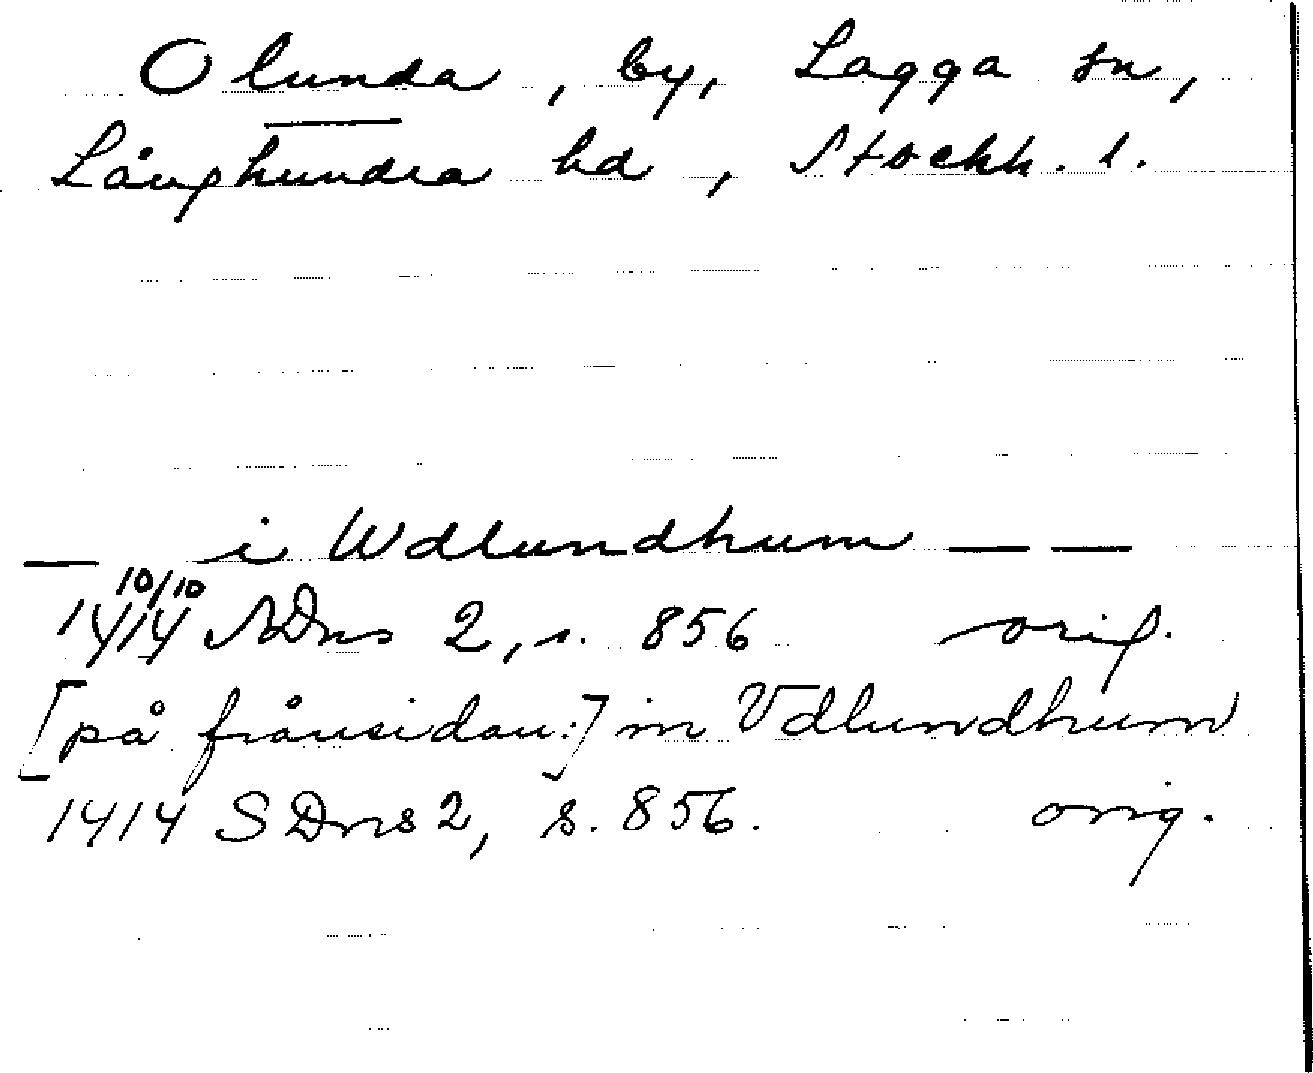 Olunda, by, Lagga sn,
Långhundra hd, Stockh. l.
— i Wdlundhum — —
10/10
1414 SDns 2, s. 856 orig.
[på frånsidan:] in Vdlundhum
1414 SDns 2, s. 856. orig.